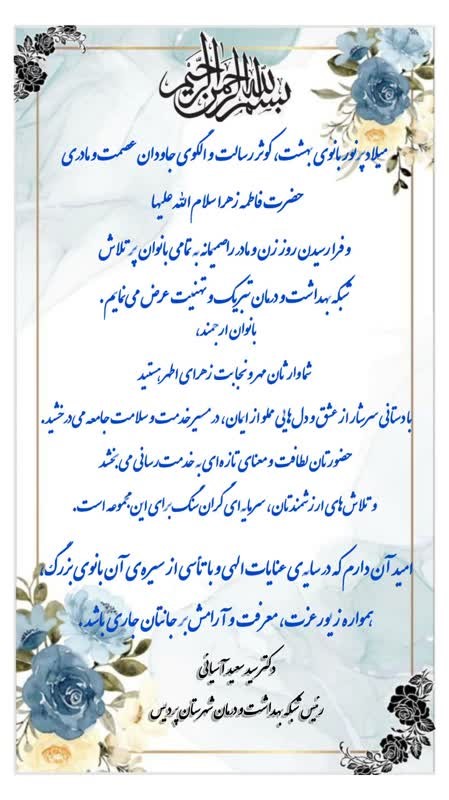 بسم الله الرحمن الرحیم
میلاد پر نور بانوی بهشت، کوثر رسالت و الگوی جاودان عصمت و مادری
حضرت فاطمه زهرا سلام الله علیها
و فرا رسیدن روز زن و مادر را صمیمانه به تمامی بانوان پر تلاش
شبکه بهداشت و درمان تبریک و تهنیت عرض می نمایم.
بانوان ارجمند،
شما وارثان مهر و نجابت زهرای اطهر هستید
با دستانی سرشار از عشق و دل هایی مملو از ایمان، در مسیر خدمت و سلامت جامعه می درخشید.
حضورتان لطافت و معنای تازه ای به خدمت رسانی می بخشد
و تلاش های ارزشمندتان، سرمایه ای گران سنگ برای این مجموعه است.
امید آن دارم که در سایه ی عنایات الهی و با تأسی از سیره ی آن بانوی بزرگ،
همواره زیور عزت، معرفت و آرامش بر جانتان جاری باشد.
دکتر سید سعید آسیائی
رئیس شبکه بهداشت و درمان شهرستان پردیس